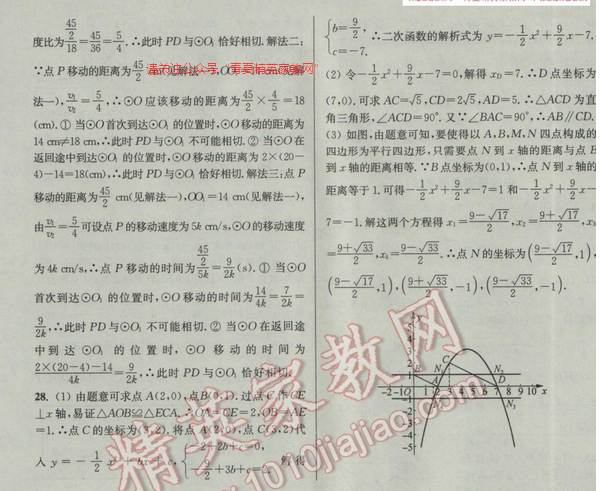 度比为 45/2 / 18 = 45/36 = 5/4. ∴此时 PD 与⊙O₁ 恰好相切. 解法二:
∵点 P 移动的距离为 45/2
法一), v₁/v₂ = 5/4, ∴⊙O 应该移动的距离为 45/2 × 4/5 = 18
(cm). ① 当⊙O 首次到达⊙O₁ 的位置时,⊙O 移动的距离为
14 cm≠18 cm,∴此时 PD 与⊙O₁ 不可能相切. ② 当⊙O 在
返回途中到达⊙O₁ 的位置时,⊙O 移动的距离为 2×(20−
4)−14=18(cm),∴此时 PD 与⊙O₁ 恰好相切. 解法三:点 P
移动的距离为 45/2 cm(见解法一),OO₁=14 cm(见解法一),
由 v₁/v₂ = 5/4 可设点 P 的移动速度为 5k cm/s,⊙O 的移动速度
为 4k cm/s,∴点 P 移动的时间为 45/2 / 5k = 9/2k (s). ① 当⊙O
首次到达⊙O₁ 的位置时,⊙O 移动的时间为 14/4k = 7/2k ≠
9/2k, ∴此时 PD 与⊙O₁ 不可能相切. ② 当⊙O 在返回途
中到达⊙O₁ 的位置时,⊙O 移动的时间为
2×(20−4)−14 / 4k = 9/2k, ∴此时 PD 与⊙O₁ 恰好相切.
28. (1) 由题意可求点 A(2,0),点 B(0,1). 过点 C 作 CE
⊥x 轴,易证△AOB≌△ECA. ∴OA=CE=2,OB=AE
=1. ∴点 C 的坐标为(3,2). 将点 A(2,0),点 C(3,2)代
入 y=−1/2 x²+bx+c, { −2+2b+c=0, −9/2+3b+c=2. 解得
{ b=9/2, c=−7. ∴二次函数的解析式为 y=−1/2 x²+9/2 x−7.
(2) 令−1/2 x²+9/2 x−7=0,解得 x_D=7. ∴D 点坐标为
(7,0). 可求 AC=√5,CD=2√5,AD=5. ∴△ACD 为直
角三角形,∠ACD=90°. 又∵∠BAC=90°,∴AB∥CD.
(3) 如图,由题意可知,要使得以 A,B,M,N 四点构成的
四边形为平行四边形,只需要点 N 到 x 轴的距离与点 B
到 x 轴的距离相等. ∵B 点坐标为(0,1),∴点 N 到 x 轴的
距离等于 1. 可得−1/2 x²+9/2 x−7=1 和−1/2 x²+9/2 x−
7=−1. 解这两个方程得 x₁=(9−√17)/2, x₂=(9+√17)/2, x₃
=(9+√33)/2, x₄=(9−√33)/2. ∴点 N 的坐标为((9+√17)/2,1),
((9−√17)/2,1),((9+√33)/2,−1),((9−√33)/2,−1).
y
B N₁ C N₂
−2 −1 O 7 8 9 10 x
N₃
精英家教网
www.1010jiajiao.com